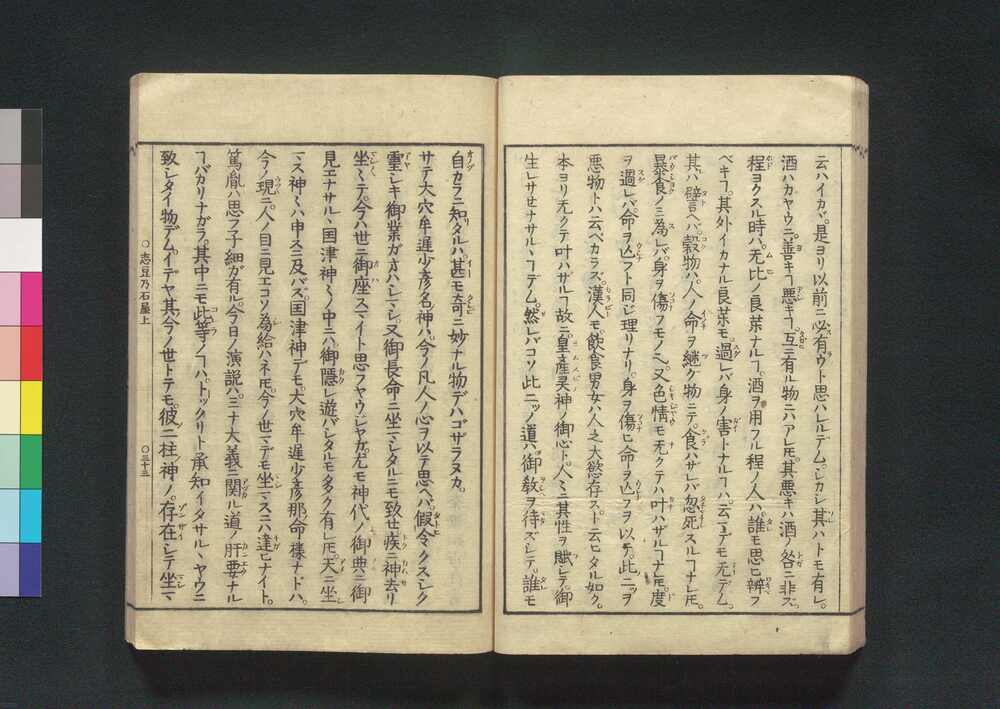 云ハイカヾ。是ヨリ以前ニ必有ウト思ハレルデム。シカシ其ハトモ有レ。
酒ハカヤウニ。善キヿ悪キヿ。互ニ有ル物ニハアレ𪜈。其悪キハ酒ノ咎ニ非ズ。
程ヨクスル時ハ。无比ノ良薬ナルヿ。酒ヲ用フル程ノ人ハ。誰モ思ヒ辨フ
ベキヿ。其外イカナル良薬モ。過レバ身ノ害トナルヿハ。云マデモ无デム。
其ハ譬ヘバ。穀物ハ。人ノ命ヲ継ク物ニテ。食ハサレバ忽死スルヿナレ𪜈。
暴食ノミ為レバ。身ヲ傷フモノ也。又色情モ无クテハ叶ハザルヿナレ𪜈。度
ヲ過レバ命ヲ亡フト同ジ理リナリ。身ヲ傷ヒ命ヲ亡フヲ以テ。此二ツヲ
悪物トハ云ベカラズ。漢人モ。飲食男女ハ人之大慾存ストニ云ヒタル如ク。
本ヨリ无クテ叶ハザルヿ故ニ。皇産灵神ノ御心ト。人々ニ其性ヲ賦レテ。御
生レサセナサル丶ヿデム。然レバコソ此二ツノ道ハ。御教ヲ待ズシテ。誰モ
自カラニ知タルハ。甚モ奇ニ妙ナル物デハゴザラヌカ。
サテ大穴牟遅少彦名神ハ。今ノ凡人ノ心ヲ以テ思ヘバ。假令クスシク
霊シキ御業ガオハシマシ。又御長命ニ坐マシタルニモ致セ。疾ニ神去リ
坐シテ。今ハ世ニ御座スマイト思フヤウジヤガ。尤モ神代ノ御典ニ御
見エナサル丶。国津神々ノ中ニハ。御隠レ遊バシタルモ多ク有レ𪜈。天ニ坐
マス神々ハ申スニ及バズ。国津神デモ。大穴牟遅少彦那命様ナドハ。
今ノ現ニ。人ノ目ニ見エコソ為給ハネ𪜈。今ノ世マデモ坐マスニハ違ヒナイト。
篤胤ハ思フ子細ガ有ル。今日ノ演説ハ。ミナ大義ニ関ル道ノ肝要ナル
ヿバカリナガラ。其中ニモ此等ノヿハ。トツクリト承知イタサル丶ヤウニ
致シタイ物デム。イデヤ其今ノ世トテモ。彼二柱ノ神ノ。存在シテ坐マ
○志豆乃石屋上
○三十三